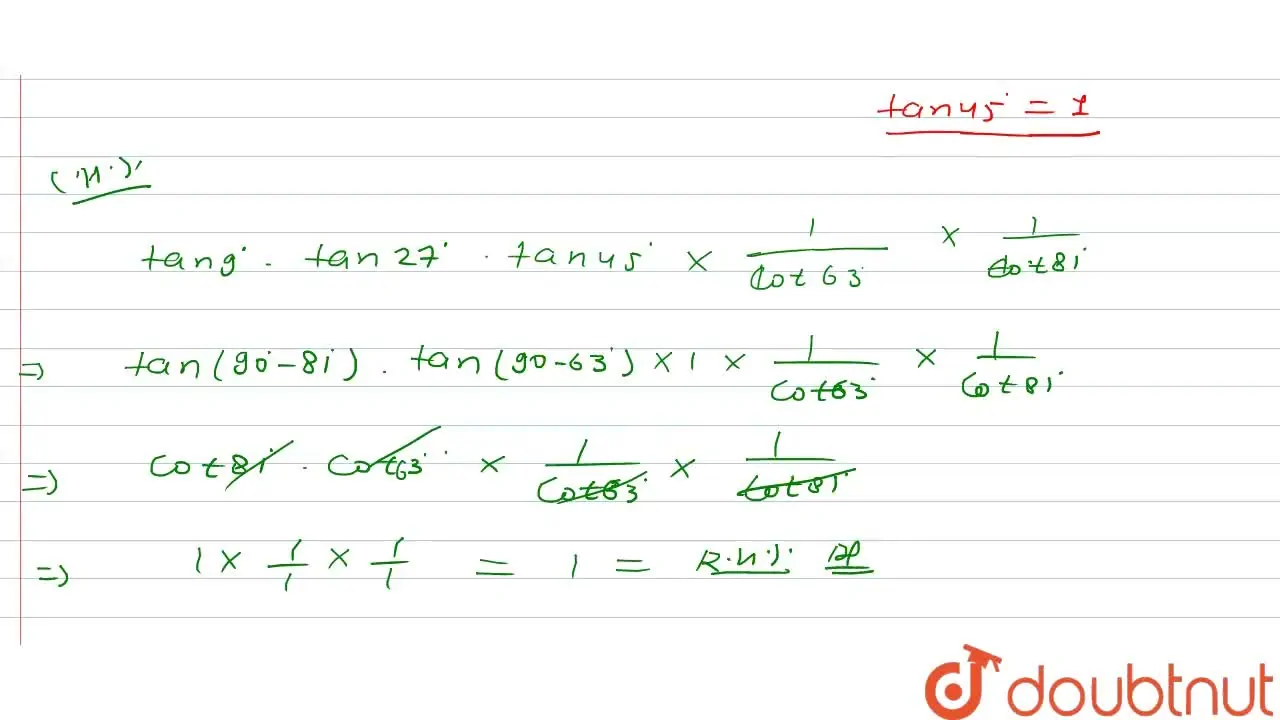 tan45° = 1
(H.).
tan9° . tan27° . tan45° × 1/cot63° × 1/cot81°
⇒ tan(90°-81°) . tan(90-63°) × 1 × 1/cot63° × 1/cot81°
⇒ cot81° . cot63° × 1/cot63° × 1/cot81°
⇒ 1 × 1/1 × 1/1 = 1 = R.H.S.
doubtnut